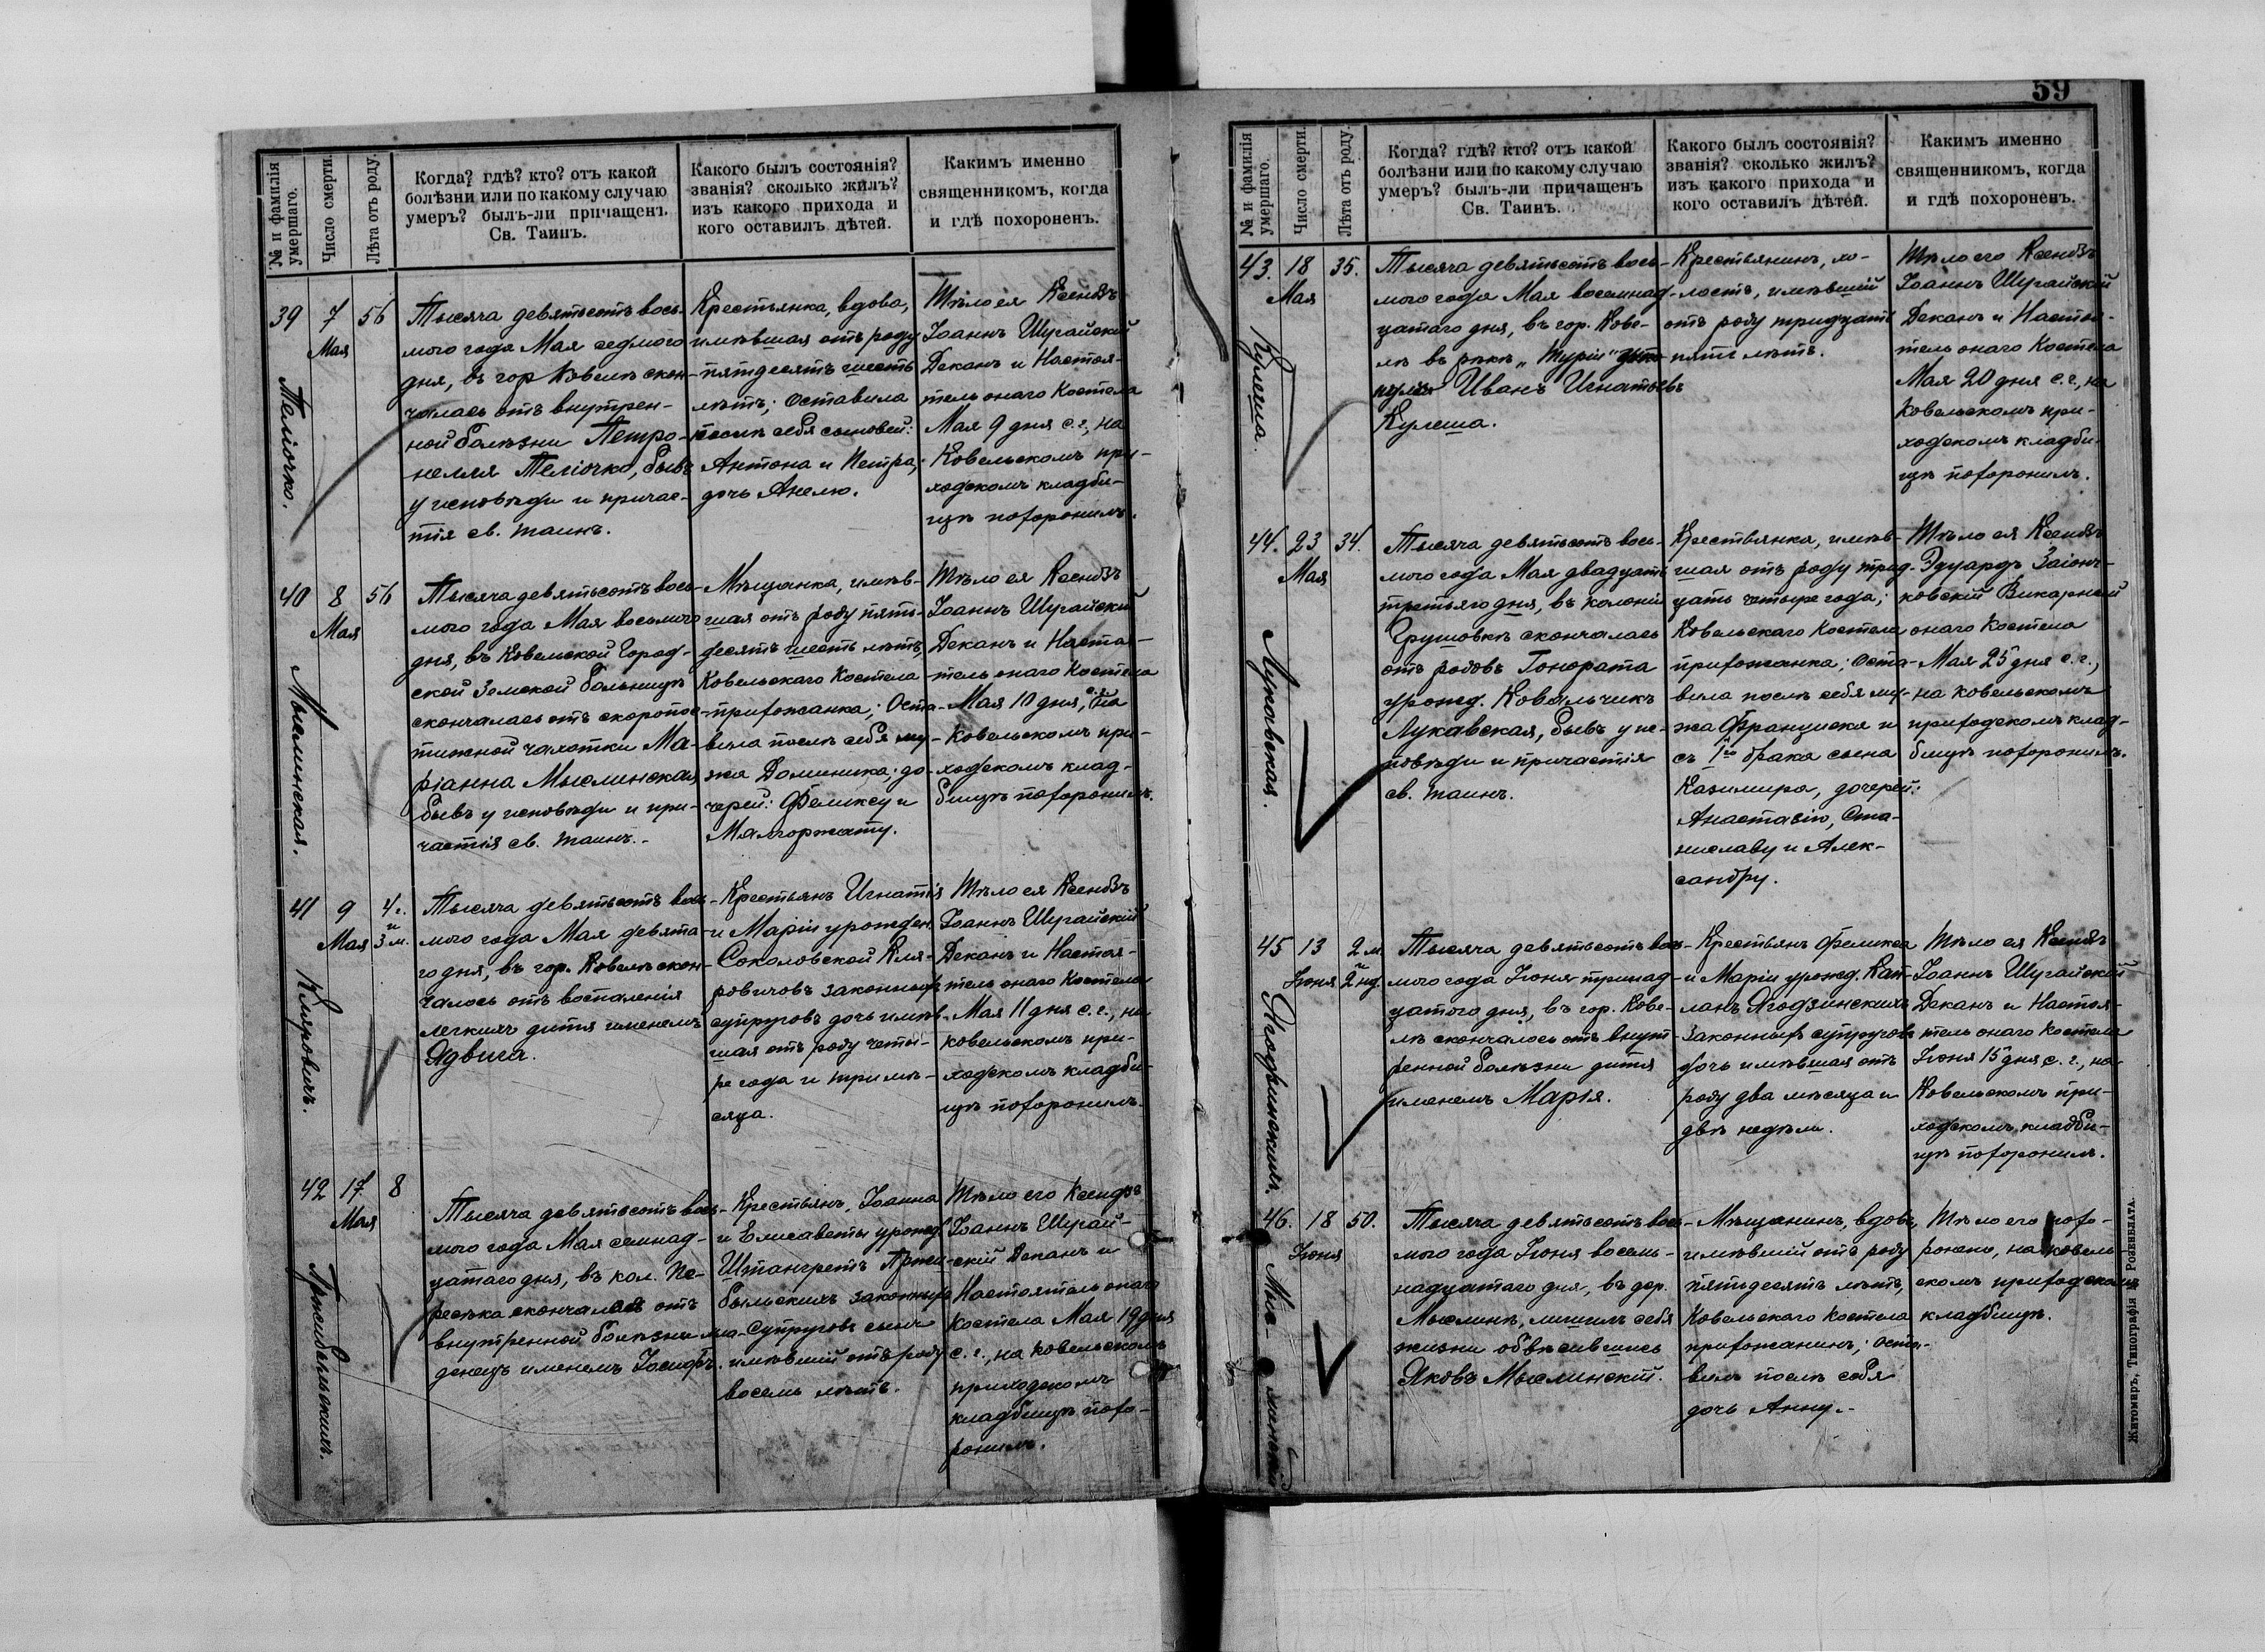 № и фамилія умершаго.
Число смерти.
Лѣта отъ роду.
Когда? гдѣ? кто? отъ какой
болѣзни или по какому случаю
умеръ? былъ-ли причащенъ
Св. Таинъ.
Какого былъ состоянія?
званія? сколько жилъ?
изъ какого прихода и
кого оставилъ дѣтей.
Какимъ именно
священникомъ, когда
и гдѣ похороненъ.
39
7
Мая
56
Пеліочко.
Тысяча девятьсотъ вось-
мого года Мая седмого
дня, въ гор Ковелѣ скон-
чалась отъ внутрен-
ной болѣзни Петро-
нелля Пеліочко, бывъ
у исповѣди и причас-
тія св. таинъ.
Крестьянка, вдова,
имѣвшая отъ роду
пятдесятъ шесть
лѣтъ; оставила
послѣ себя сыновей:
Антона и Петра,
дочь Анелю.
Тѣло ея Ксендзъ
Іоаннъ Шугайскій
Деканъ и Настоя-
тель онаго Костела
Мая 9 дня с. г., на
Ковельскомъ при-
ходскомъ кладби-
щѣ похоронилъ.
40
8
Мая
56
Мыслинская.
Тысяча девятьсотъ вось-
мого года Мая восьмого
дня, въ Ковельской Город-
ской Земской больницѣ
скончалась отъ скоропос-
тижной чахотки Ма-
ріанна Мыслинская
бывъ у исповѣди и при-
частія св. таинъ.
Мѣщанка, имѣв-
шая отъ роду пять-
десятъ шесть лѣтъ,
Ковельскаго Костела
прихожанка; Оста-
вила послѣ себя му-
жа Доминика; до-
черей: Феликсу и
Малгоржату.
Тѣло ея Ксендзъ
Іоаннъ Шугайскій
Деканъ и Настоя-
тель онаго Костела
Мая 10 дня, с. г. на
Ковельскомъ при-
ходскомъ клад-
бищѣ похоронилъ.
41
9
Мая
4 г.
и
3 м.
Кляровичъ.
Тысяча девятьсотъ вось-
мого года Мая девята-
го дня, въ гор. Ковелѣ скон-
чалось отъ воспаленія
легкихъ дитя именемъ
Ядвига.
Крестьянъ Игнатія
и Маріи урожден.
Соколовской Кля-
ровичовъ законныхъ
супруговъ дочь имѣв-
шая отъ роду четы-
ре года и три мѣ-
сяца.
Тѣло ея Ксендзъ
Іоаннъ Шугайскій
Деканъ и Настоя-
тель онаго Костела
Мая 11 дня с. г., на
ковельскомъ при-
ходскомъ кладби-
щѣ похоронилъ.
42
17
Мая
8
Пржибыльскихъ.
Тысяча девятьсотъ вось-
мого года Мая семнад-
цатаго дня, въ кол. Пе-
ресѣка скончался отъ
внутренной болѣзни мла-
денецъ именемъ Іосифъ.
Крестьянъ, Іоанна
и Елисаветы урожд.
Штангретъ Пржи-
быльскихъ законныхъ
Супруговъ сынъ
имѣвшій отъ роду
восемь лѣтъ.
Тѣло его Ксендзъ
Іоаннъ Шугай-
скій Деканъ и
Настоятель онаго
Костела Мая 19 дня
с. г., на ковельскомъ
приходскомъ
кладбищѣ похо-
ронилъ.
59
№ и фамилія умершаго.
Число смерти.
Лѣта отъ роду.
Когда? гдѣ? кто? отъ какой
болѣзни или по какому случаю
умеръ? былъ-ли причащенъ
Св. Таинъ.
Какого былъ состоянія?
званія? сколько жилъ?
изъ какого прихода и
кого оставилъ дѣтей.
Какимъ именно
священникомъ, когда
и гдѣ похороненъ.
43.
18
Мая
35.
Кулеша.
Тысяча девятьсотъ вось-
мого года Мая восемнад-
цатаго дня, въ гор. Кове-
лѣ въ рѣкѣ „Туріи"
Иванъ Игнатьевъ
Кулеша.
Крестьянинъ, хо-
лостъ, имѣвшій
отъ роду тридцать
пять лѣтъ.
Тѣло его Ксендзъ
Іоаннъ Шугайскій
Деканъ и Настоя-
тель онаго Костела
Мая 20 дня с. г., на
Ковельскомъ при-
ходскомъ кладби-
щѣ похоронилъ.
44.
23
Мая
34.
Лукавская.
Тысяча девятьсотъ вось-
мого года Мая двадцать
третьяго дня, въ колоніи
Грушовкѣ скончалась
отъ родовъ Гонората
урожд. Ковальчикъ
Лукавская, бывъ у ис-
повѣди и причастія
св. таинъ.
Крестьянка, имѣв-
шая отъ роду трид-
цать четыре года;
Ковельскаго Костела
прихожанка; Оста-
вила послѣ себя му-
жа Франциска и
съ 1го брака сына
Казимира, дочерей:
Анастасію, Ста-
ниславу и Алек-
сандру.
Тѣло ея Ксендзъ
Эдуардъ Заіонч-
ковскій Викарный
онаго Костела
Мая 25 дня с. г.,
на ковельскомъ
приходскомъ клад-
бищѣ похоронилъ.
45
13
Іюня
2 м.
и
2 нд.
Ягодзинскихъ.
Тысяча девятьсотъ вось-
мого года Іюня тринад-
цатого дня, въ гор. Кове-
лѣ скончалось отъ внут-
ренной болѣзни дитя
именемъ Марія.
Крестьянъ Феликса
и Маріи урожд. Кап-
ланъ Ягодзинскихъ
Законныхъ супруговъ
дочь имѣвшая отъ
роду два мѣсяца и
двѣ недѣли.
Тѣло ея Ксендзъ
Іоаннъ Шугайскій
Деканъ и Настоя-
тель онаго Костела
Іюня 15 дня с. г., на
Ковельскомъ при-
ходскомъ кладби-
щѣ похоронилъ.
46.
18
Іюня
50.
Мыс-
Тысяча девятьсотъ вось-
мого года Іюня восемь-
надцатаго дня, въ дер.
Мыслинѣ, лишилъ себя
жизни обвѣсившись
Яковъ Мыслинскій.
Мѣщанинъ, вдовъ,
имѣвшій отъ роду
пятьдесятъ лѣтъ,
Ковельскаго Костела
прихожанинъ; оста-
вилъ послѣ себя
дочь Анну.
Тѣло его похо-
ронено, на ковель-
скомъ приходскомъ
кладбищѣ.
Житомиръ, Типографія М. Розенблата.